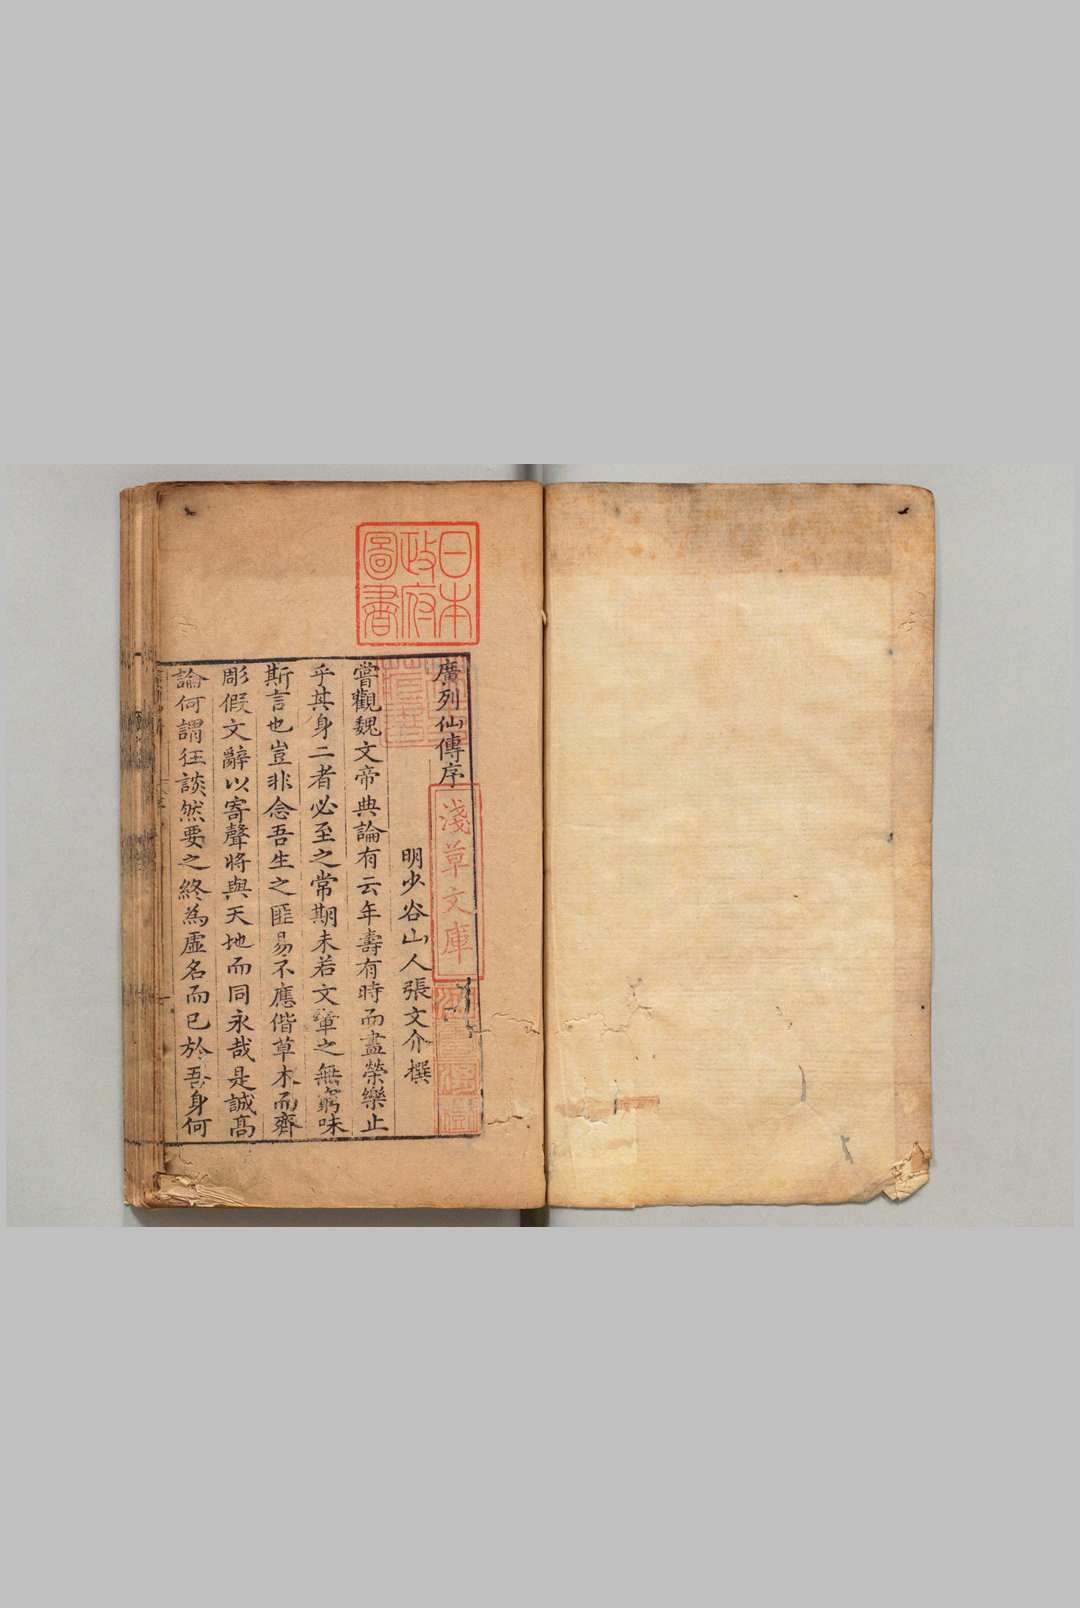 廣列仙傳序
明少谷山人張文介撰
嘗觀魏文帝典論有云年壽有時而盡榮樂止
乎其身二者必至之常期未若文章之無窮味
斯言也豈非念吾生之匪易不應偕草木而齊
彫假文辭以寄聲將與天地而同永哉是誠高
論何謂狂談然要之終為虛名而已於吾身何
日本
政府
圖書
淺草文庫